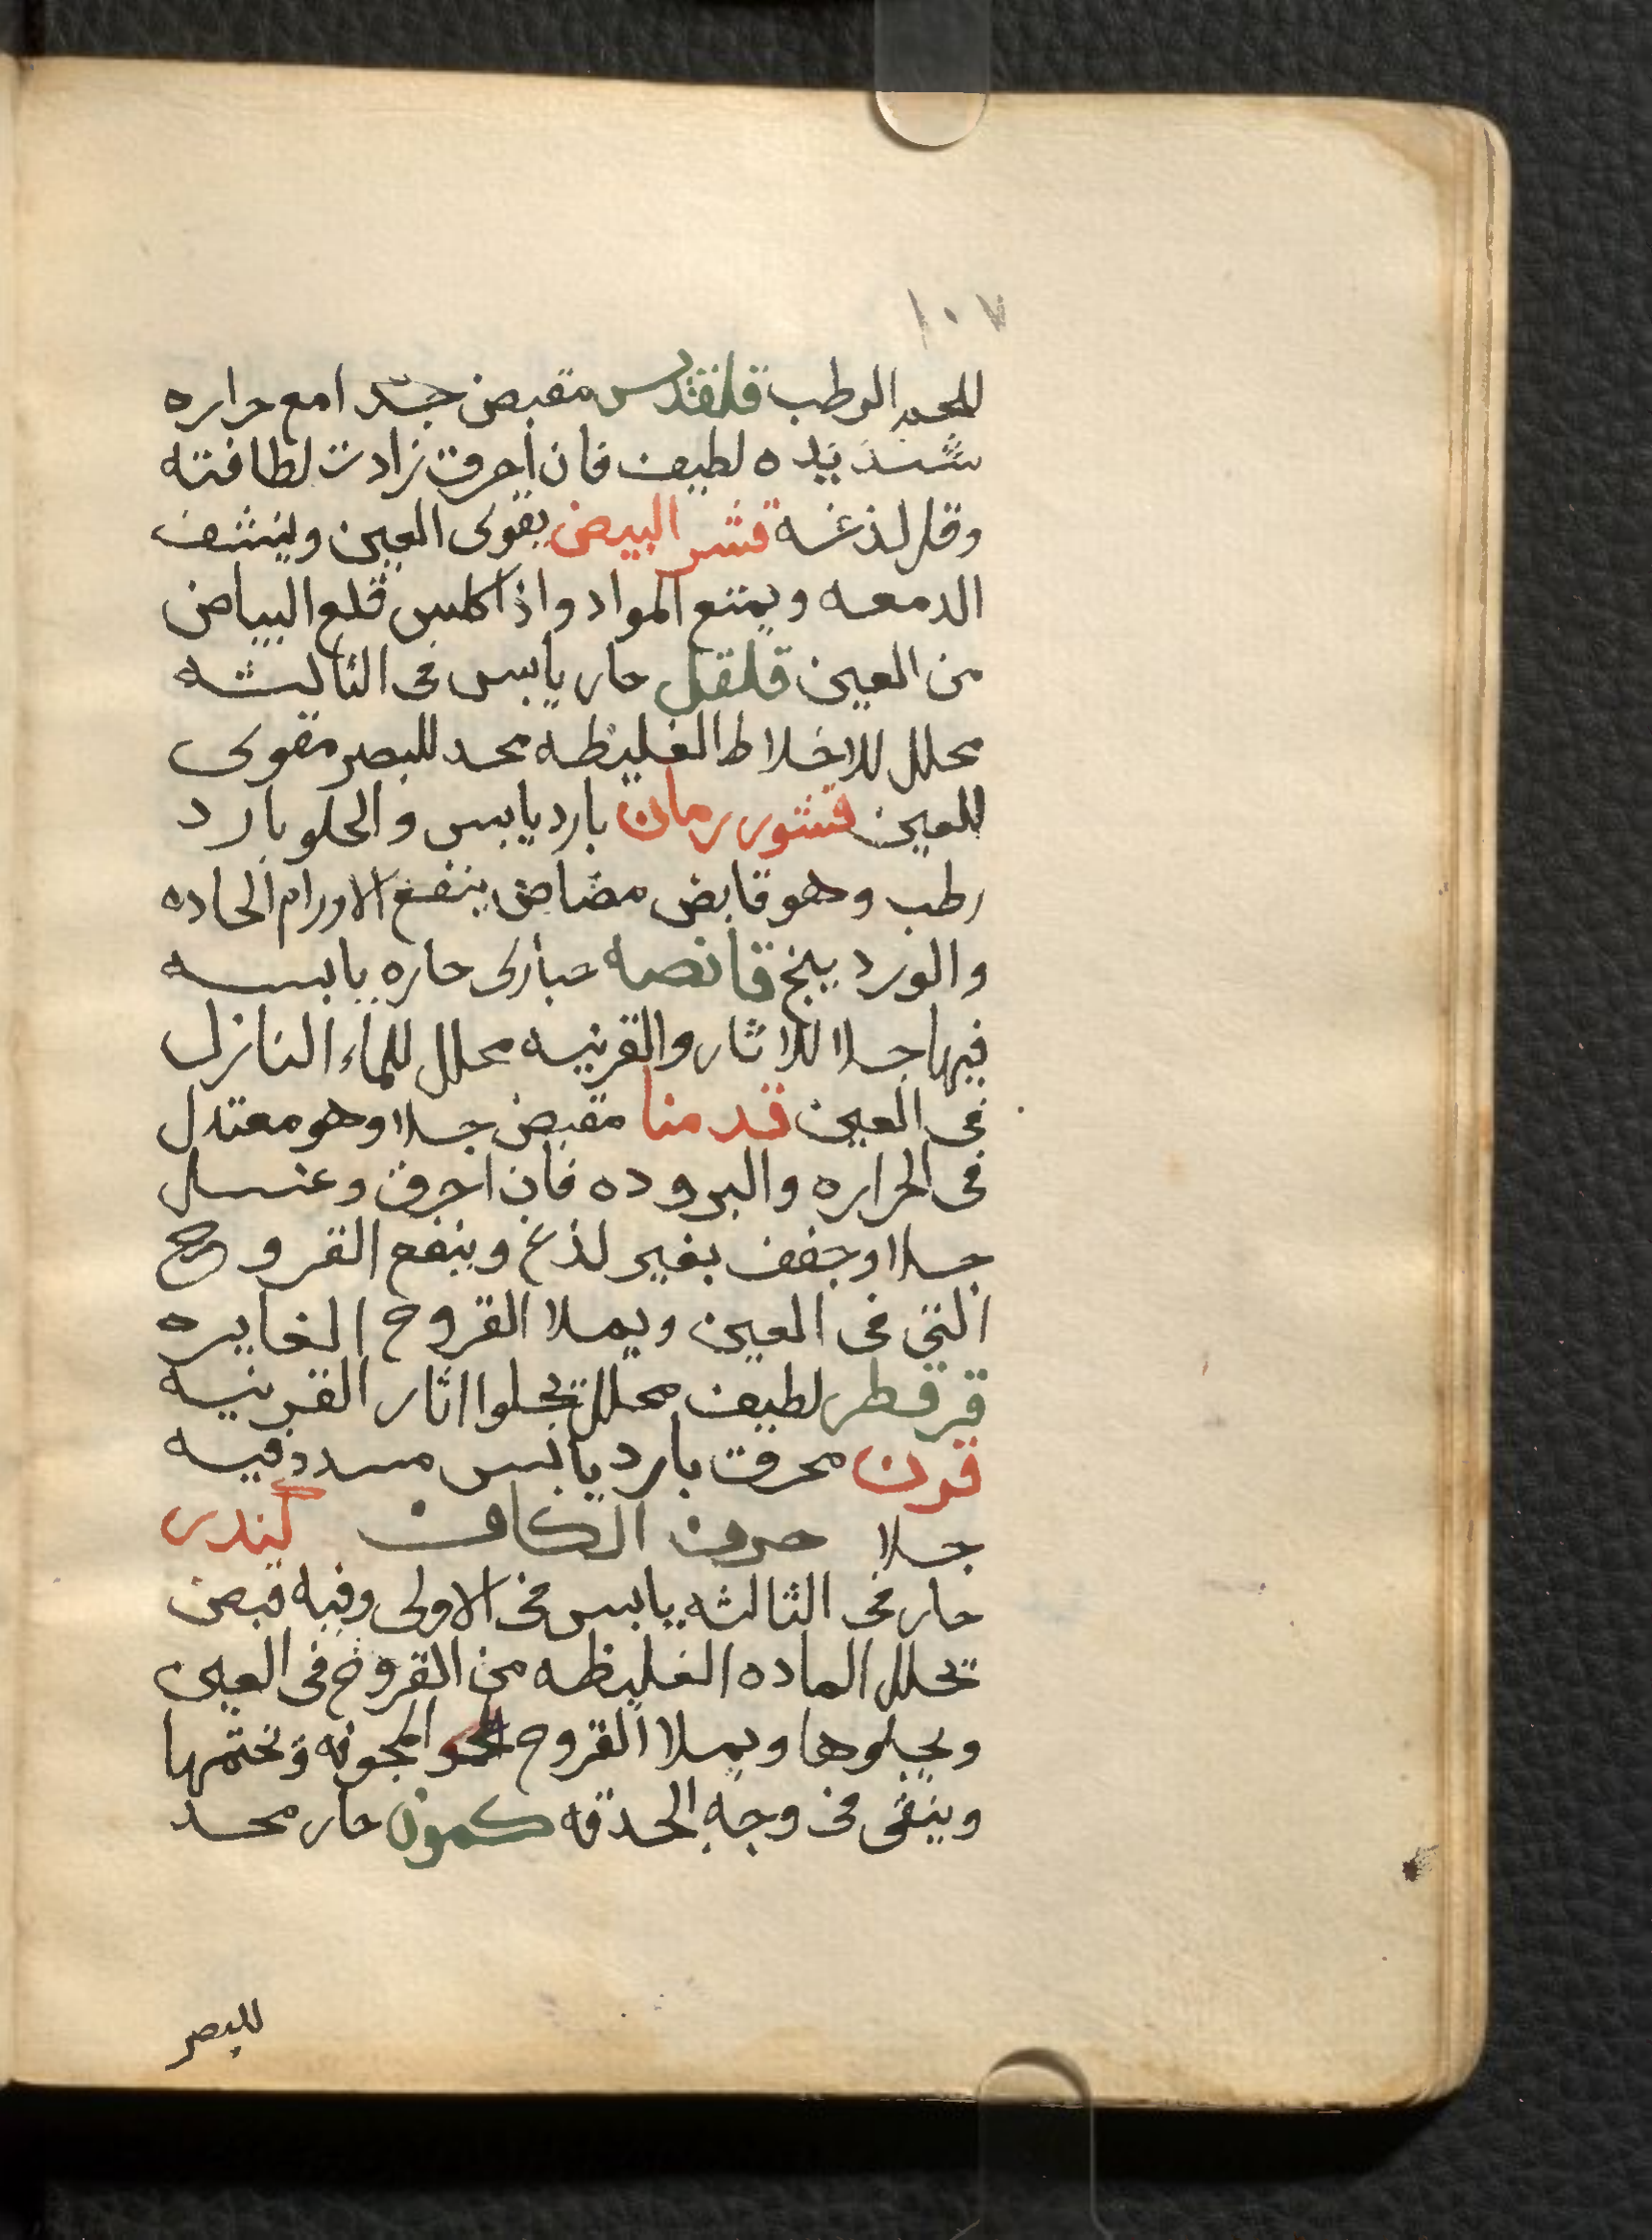 ١٠٧
للحمد الرطب قلقديس مقبض جدا مع حراره
شديده لطيف فان احرق زادت لطافته
وقل لذغه قشر البيض يقوى العين وينشف
الدمعه ويمنع المواد واذا كلس قلع البياض
من العين قلقل حار يابس فى الثالثه
محلل للاخلاط الغليظه محد للبصر مقوى
للعين قشور رمان بارد يابس والحلو بارد
رطب وهو قابض مضاض ينفع الاورام الحاده
والوردينج قانصه حبارى حاره يابسه
فيها جلا للاثار والقرنيه محلل للماء النازل
فى العين قدمنا مقبض جلا وهو معتدل
فى الحراره والبروده فان احرق وغسل
جلا وجفف بغير لذع وينفع القروح
التى فى العين ويملا القروح الغايره
قرقطر لطيف محلل يجلوا اثار القرنيه
قرن محرق بارد يابس مسدد فيه
جلا حرف الكاف كندر
حار فى الثالثه يابس فى الاولى وفيه قبض
تحلل الماده الغليظه من القروح فى العين
ويجلوها ويملا القروح المجوفه وتختمها
وينقى من وجه الحدقه كمون حار محد
للبصر